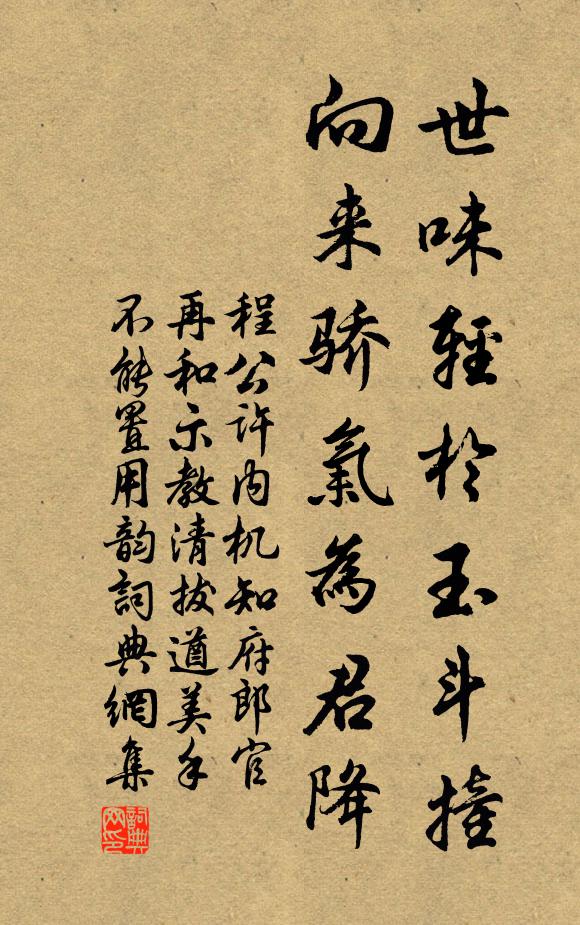 世味輕於玉斗撞
向来骄氣為君降
程公许内机知府郎官
再和示教清拔遒美手
不能置用韵詞典網集
詞典网印